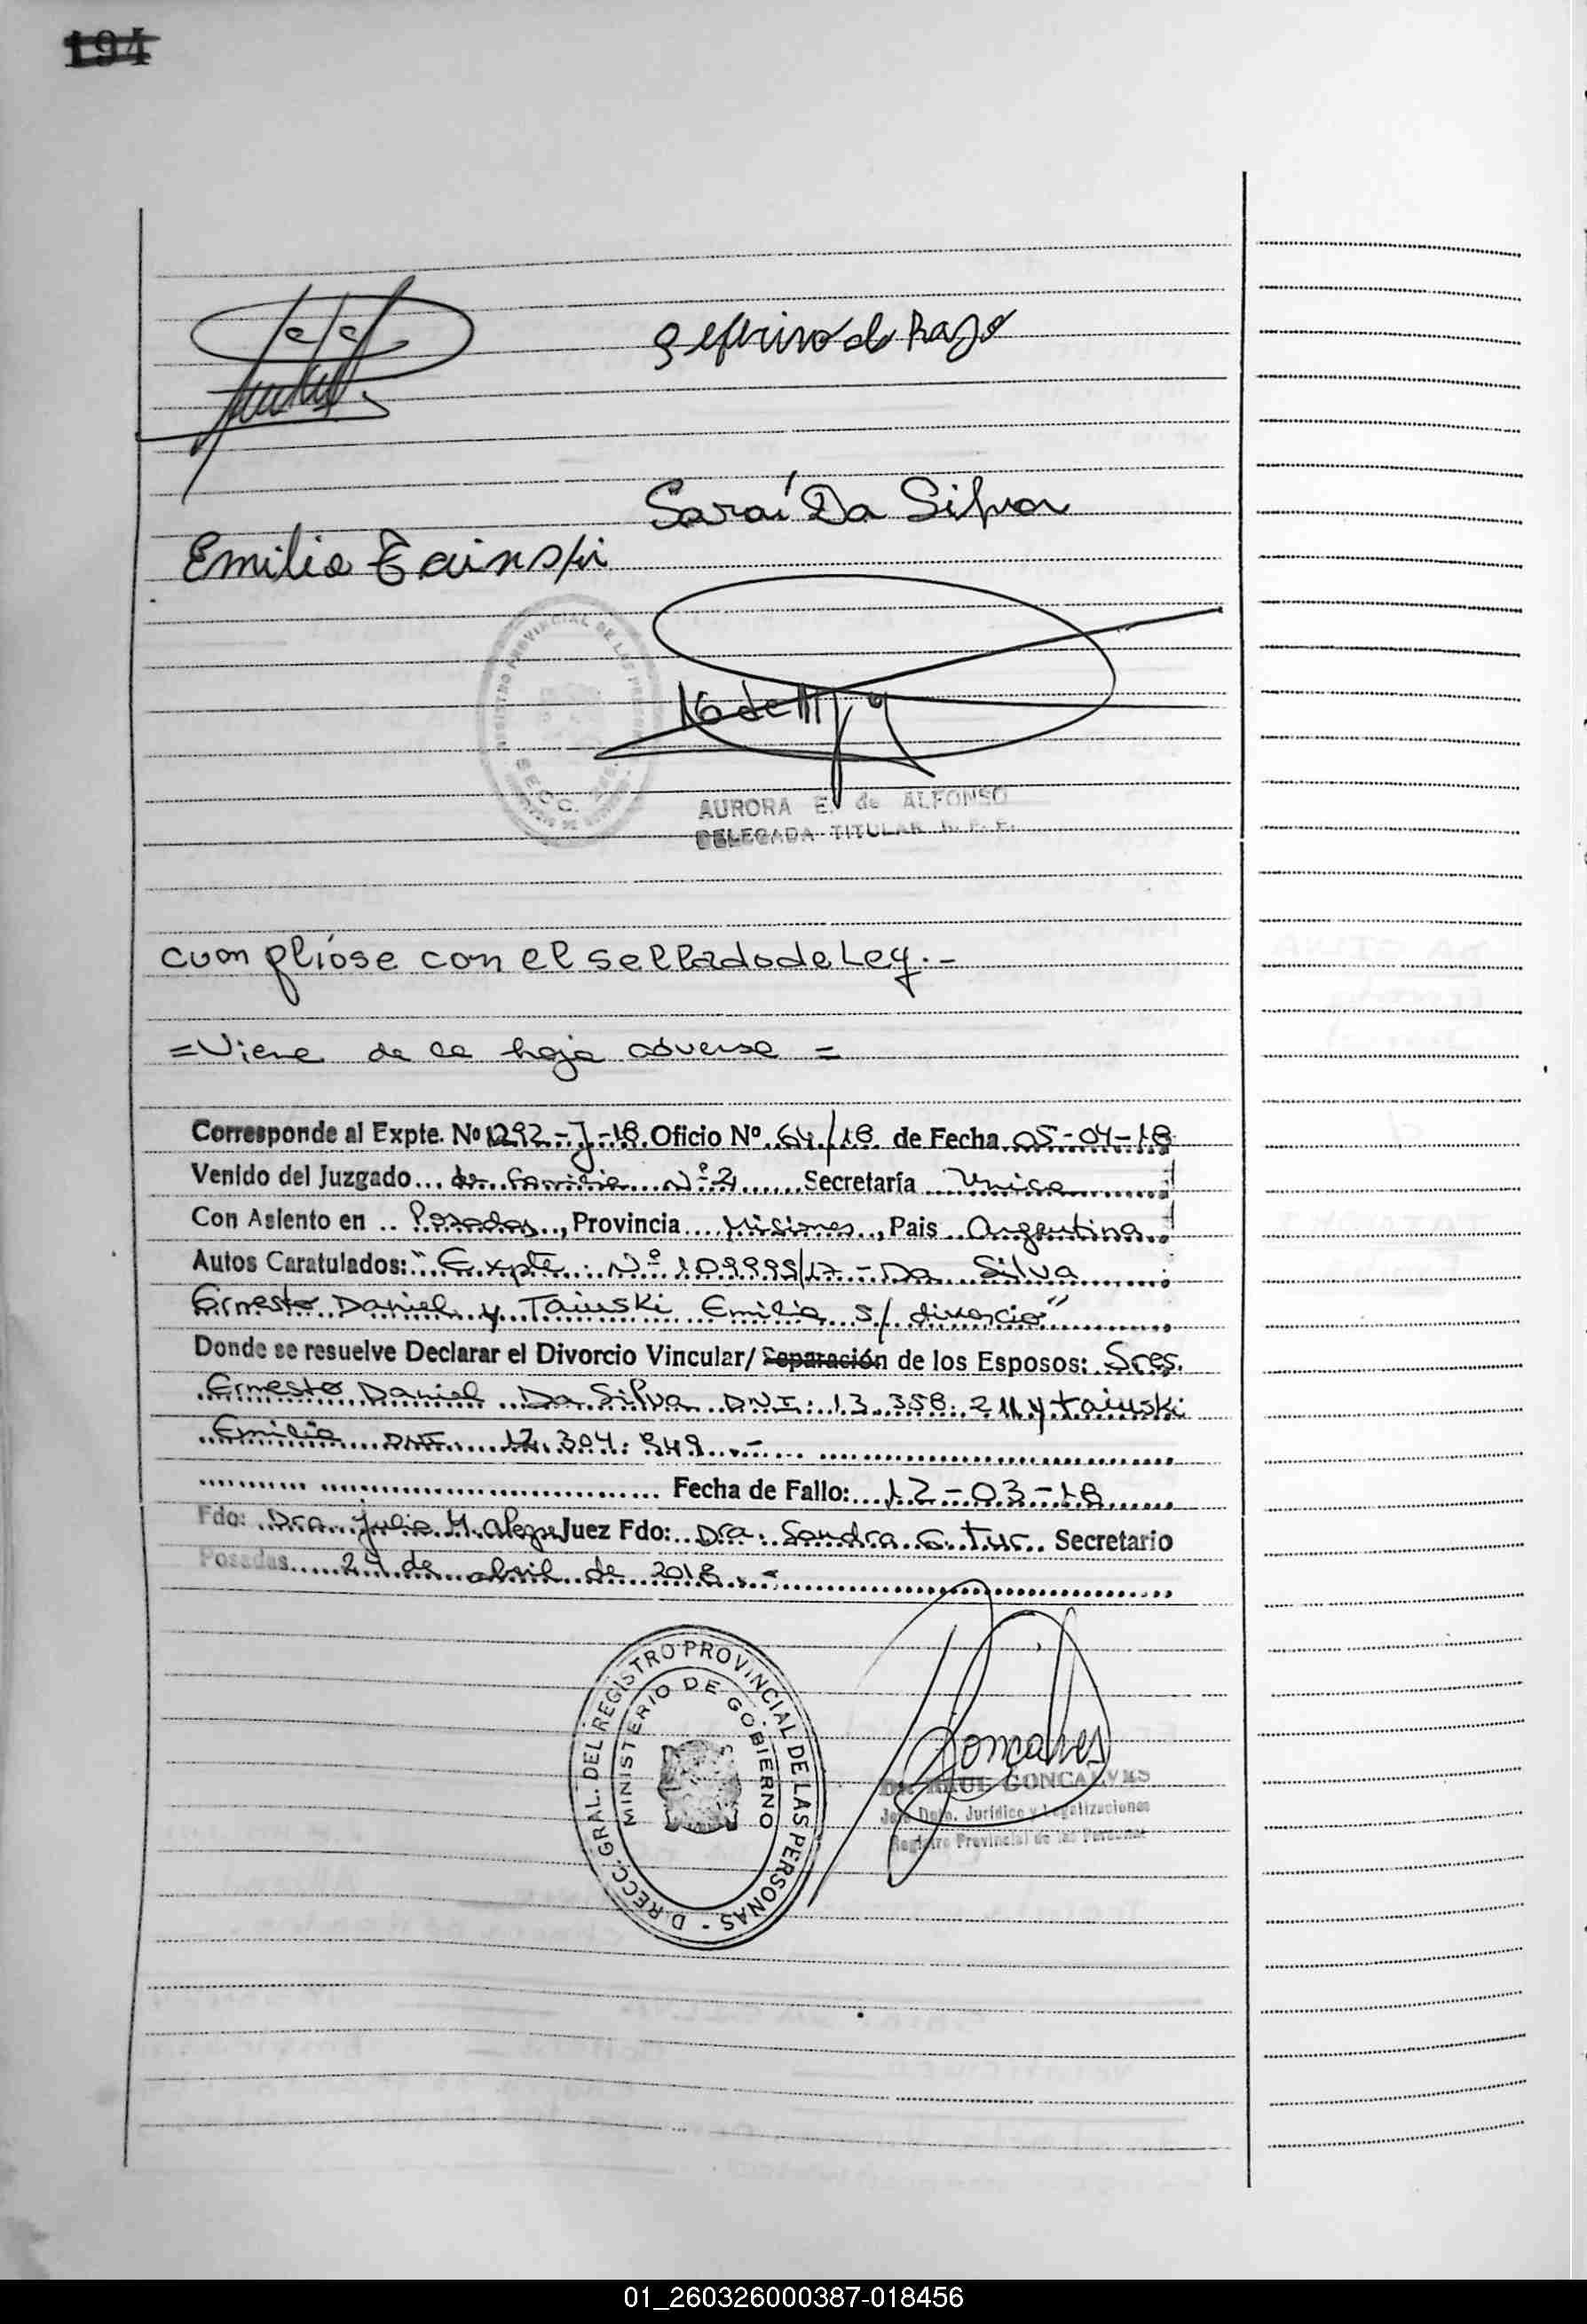 194
Seferino do Rago
Saraí Da Silva
Emilia Tainski
REGISTRO PROVINCIAL DE LAS
SECC.
AURORA E. de ALFONSO
DELEGADA TITULAR R. P. P.
cumplióse con el sellado de Ley.-
=Viene de la hoja adversa =
Corresponde al Expte. Nº 1292-J-18. Oficio Nº 64/18 de Fecha 05-04-18
Venido del Juzgado... de Familia Nº 2 ...... Secretaría Unica
Con Asiento en .. Posadas.., Provincia.... Misiones.., Pais .. Argentina
Autos Caratulados: " Expte. Nº 109995/17 - Da Silva
Ernesto Daniel y Taiuski Emilia s/ divorcio"
Donde se resuelve Declarar el Divorcio Vincular/ Separación de los Esposos: Sres.
Ernesto Daniel Da Silva DNI: 13.358.211 y taiuski
Emilia DNI 12.304.949.-
Fecha de Fallo:....12-03-18
Fdo: Dra. Julia M. Alegre Juez Fdo: Dra. Sandra G. Tur.. Secretario
Posadas..... 24 de abril de 2018.-
DIRECC. GRAL. DEL REGISTRO PROVINCIAL DE LAS PERSONAS -
MINISTERIO DE GOBIERNO
Goncalves
Dr. RAUL GONCALVES
Jefe Dpto. Jurídico y Legalizaciones
Registro Provincial de las Personas
01_260326000387-018456